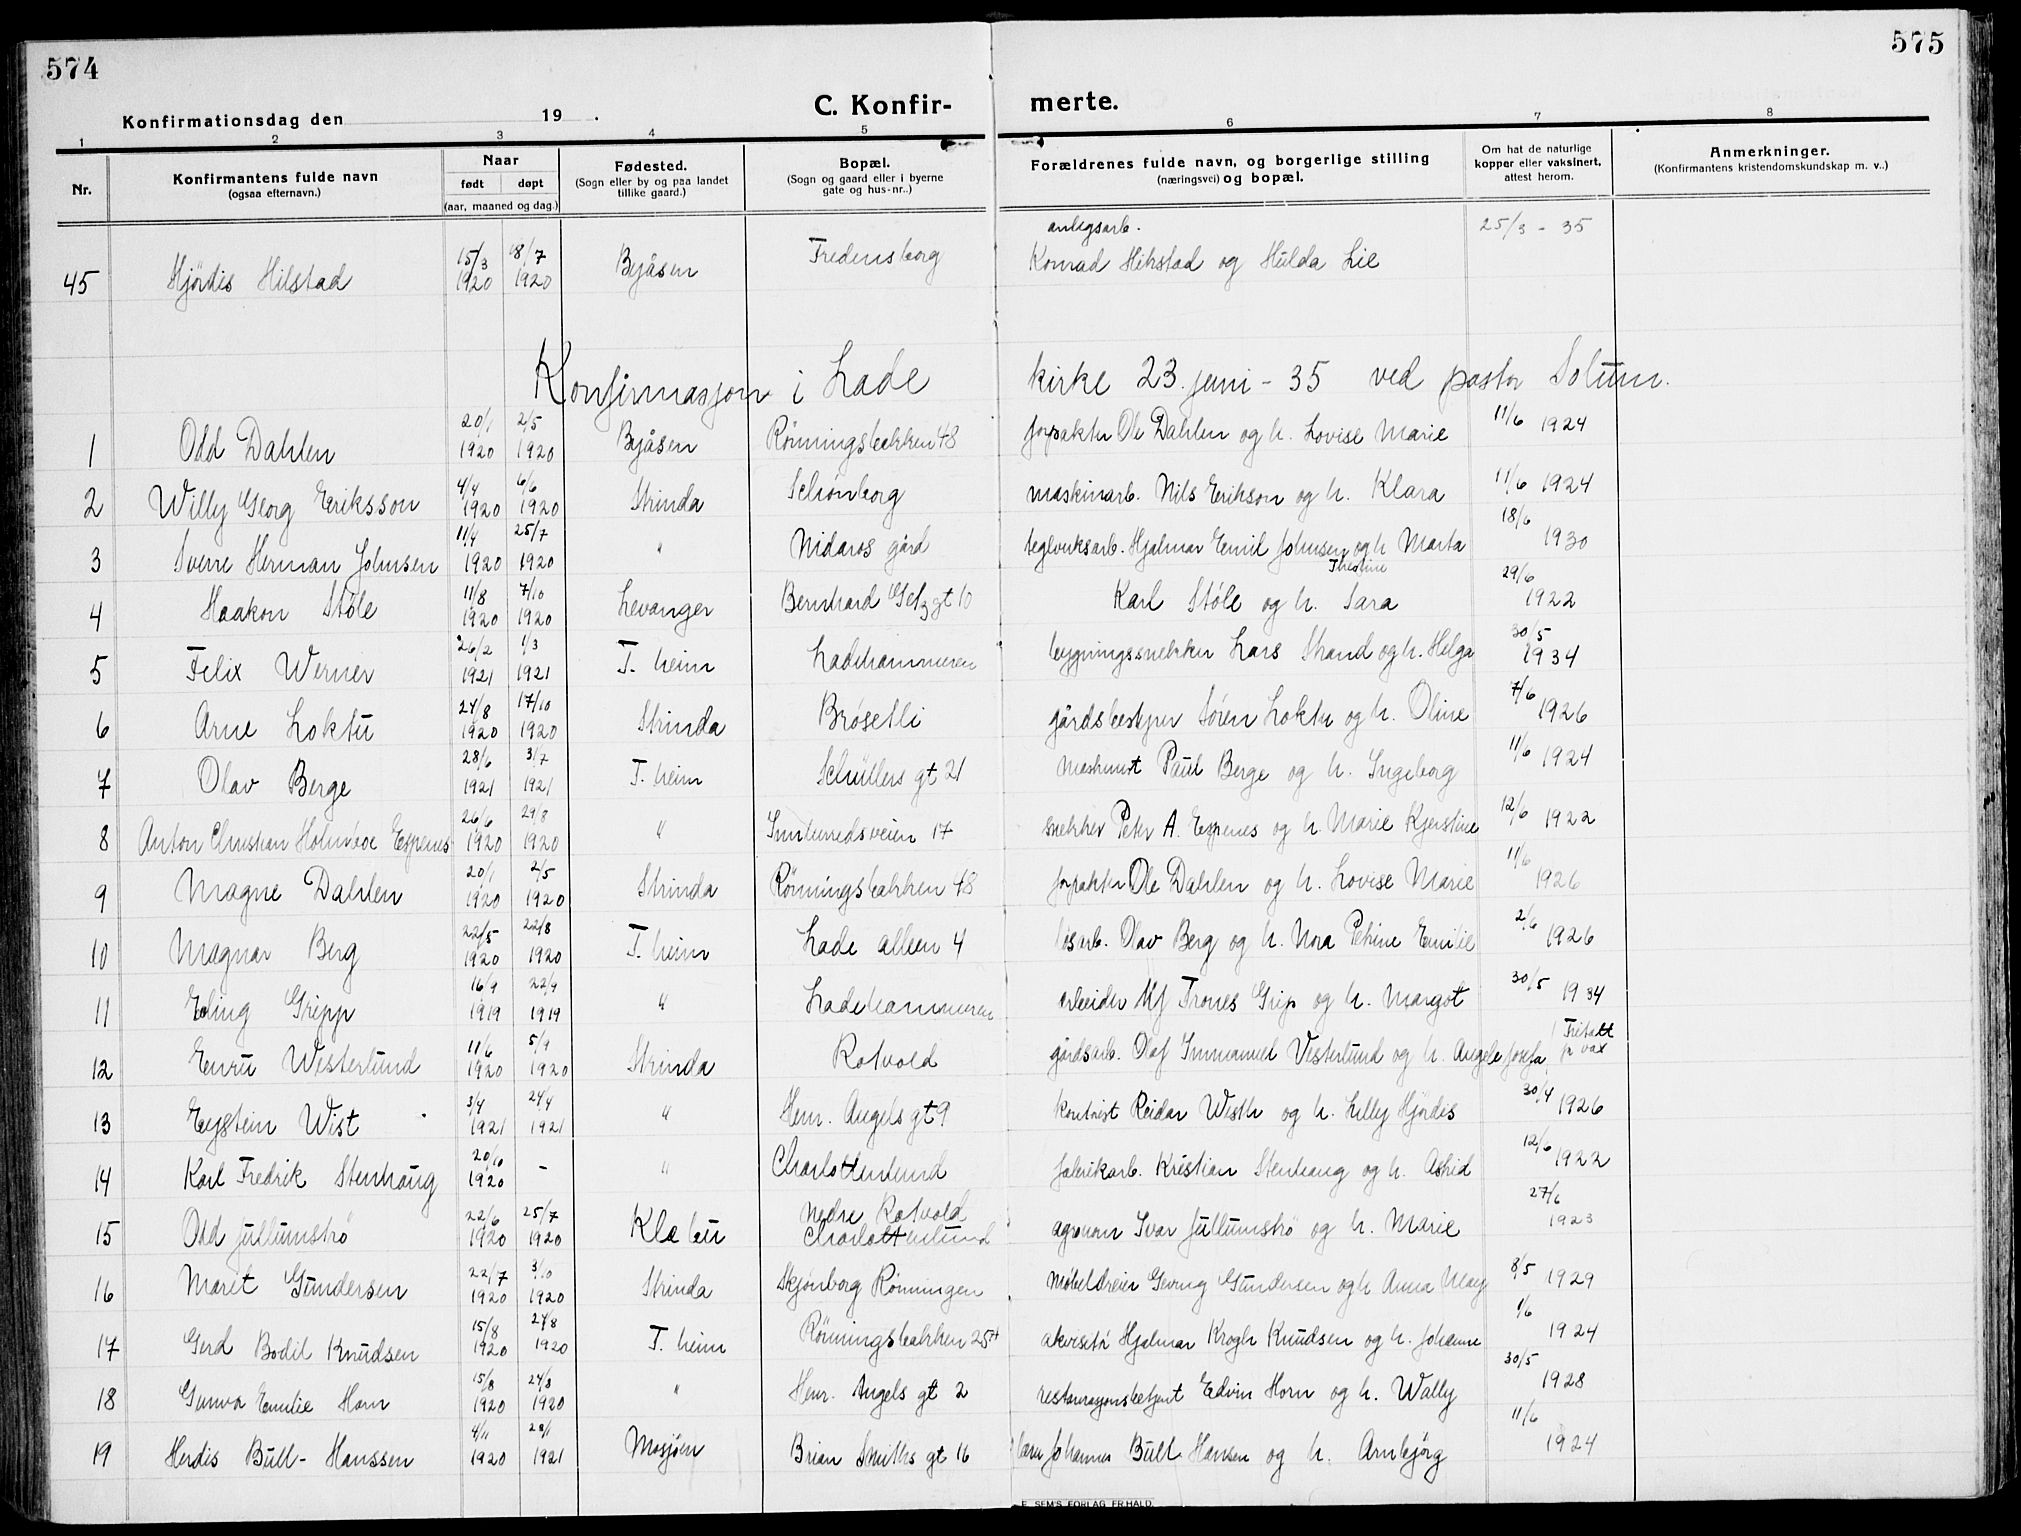 574
575
Konfirmationsdag den 19 .
C. Konfir-
merte.
1 2 3 4 5 6 7 8
Nr. Konfirmantens fulde navn (ogsaa efternavn.) Naar født døpt (aar, maaned og dag.) Fødested. (Sogn eller by og paa landet tillike gaard.) Bopæl. (Sogn og gaard eller i byerne gate og hus-nr..) Forældrenes fulde navn, og borgerlige stilling (næringsvei) og bopæl. Om hat de naturlige kopper eller vaksinert, attest herom. Anmerkninger. (Konfirmantens kristendomskundskap m. v..)
45 Hjördis Hilstad 15/3 1920 18/7 1920 Byåsen Fredensborg anlegsarb. Konrad Hihstad og Hulda Lie 25/3 - 35
Konfirmasjon i Lade kirke 23. juni - 35 ved pastor Solum.
1 Odd Dahlen 20/1 1920 2/5 1920 Byåsen Rönningsbakken 48 forpakter Ole Dahlen og h. Lovise Marie 11/6 1924
2 Willy Georg Eriksson 4/4 1920 6/6 1920 Strinda Schönborg maskinarb. Nils Erikson og h. Klara 11/6 1924
3 Sverre Herman Johnsen 11/4 1920 25/7 1920 " Nidaros gård teglverksarb. Hjalmar Emil Johnsen og h Marta 18/6 1930
4 Haakon Støle 11/8 1920 7/10 1920 Levanger Bernhard Getz gt 10 Karl Støle og h. Sara 29/6 1922
5 Felix Werner 26/2 1921 1/3 1921 T. heim Ladehammeren bygningssnekker Lars Strand og h. Helga 30/5 1934
6 Arne Loktu 24/8 1920 17/10 1920 Strinda Brøsetli gårdsbestyrer Sören Loktu og h. Oline 7/6 1926
7 Olav Berge 28/6 1921 31/7 1921 T. heim Schüllers gt 21 Maskinist Paul Berge og h. Ingeborg 11/6 1924
8 Anton Christian Espenes 26/6 1920 29/8 1920 " 17 snekker Peter A. Espenes og h. Marie Kjerstine 12/6 1922
9 Magne Dahlen 20/1 1920 2/5 1920 Strinda Rönningsbakken 48 forpakter Ole Dahlen og h. Lovise Marie 11/6 1926
10 Magnar Berg 22/5 1920 22/8 1920 T. heim Lade alleen 4 løsarb. Olav Berg og h. Nora Petrine Emilie 2/6 1926
11 Erling Gripp 16/9 1919 22/9 1919 " Ladehammeren arbeider Alf Trones Grip og h. Margot 30/5 1934
12 Westerlund 11/6 1920 5/9 1920 Strinda Rotvold gårdsarb. Olaf Immanuel Vesterlund og h. Angele Josefa Fritatt for vax
13 Eystein Wist 3/4 1921 24/4 1921 " Henr. Angels gt 9 kontorist Reidar Westh og h. Lilly Hjördis 30/4 1926
14 Karl Fredrik Stenhaug 20/10 1920 - " Charlottenlund fabrikarb. Kristian Stenhaug og h. Astrid 12/6 1922
15 Odd Jullumströ 22/6 1920 25/7 1920 Klæbu Nedre Rotvold Charlottenlund agronom Ivar Jullumströ og h. Marie 27/6 1923
16 Marit Gundersen 22/7 1920 3/10 1920 Strinda Skjönborg Rönningen Möbeldreier Georg Gundersen og h Anna May 8/5 1929
17 Gerd Bodil Knudsen 15/8 1920 24/8 1920 T. heim Rönningsbakken akvisitör Hjalmar Krogh Knudsen og h. Johanne 1/6 1924
18 Gunvor Emilie Horn 15/8 1920 24/8 1920 " Henr. Angels gt 2 restaurasjonsbetjent Edvin Horn og h. Wally 30/5 1928
19 Herdis Bull-Hanssen 4/11 1920 28/1 1921 Mosjøen Brian Smiths gt 16 lærer Johannes Bull Hansen og h. Arnbjørg 11/6 1924
E. SEM'S FORLAG, FR.HALD.